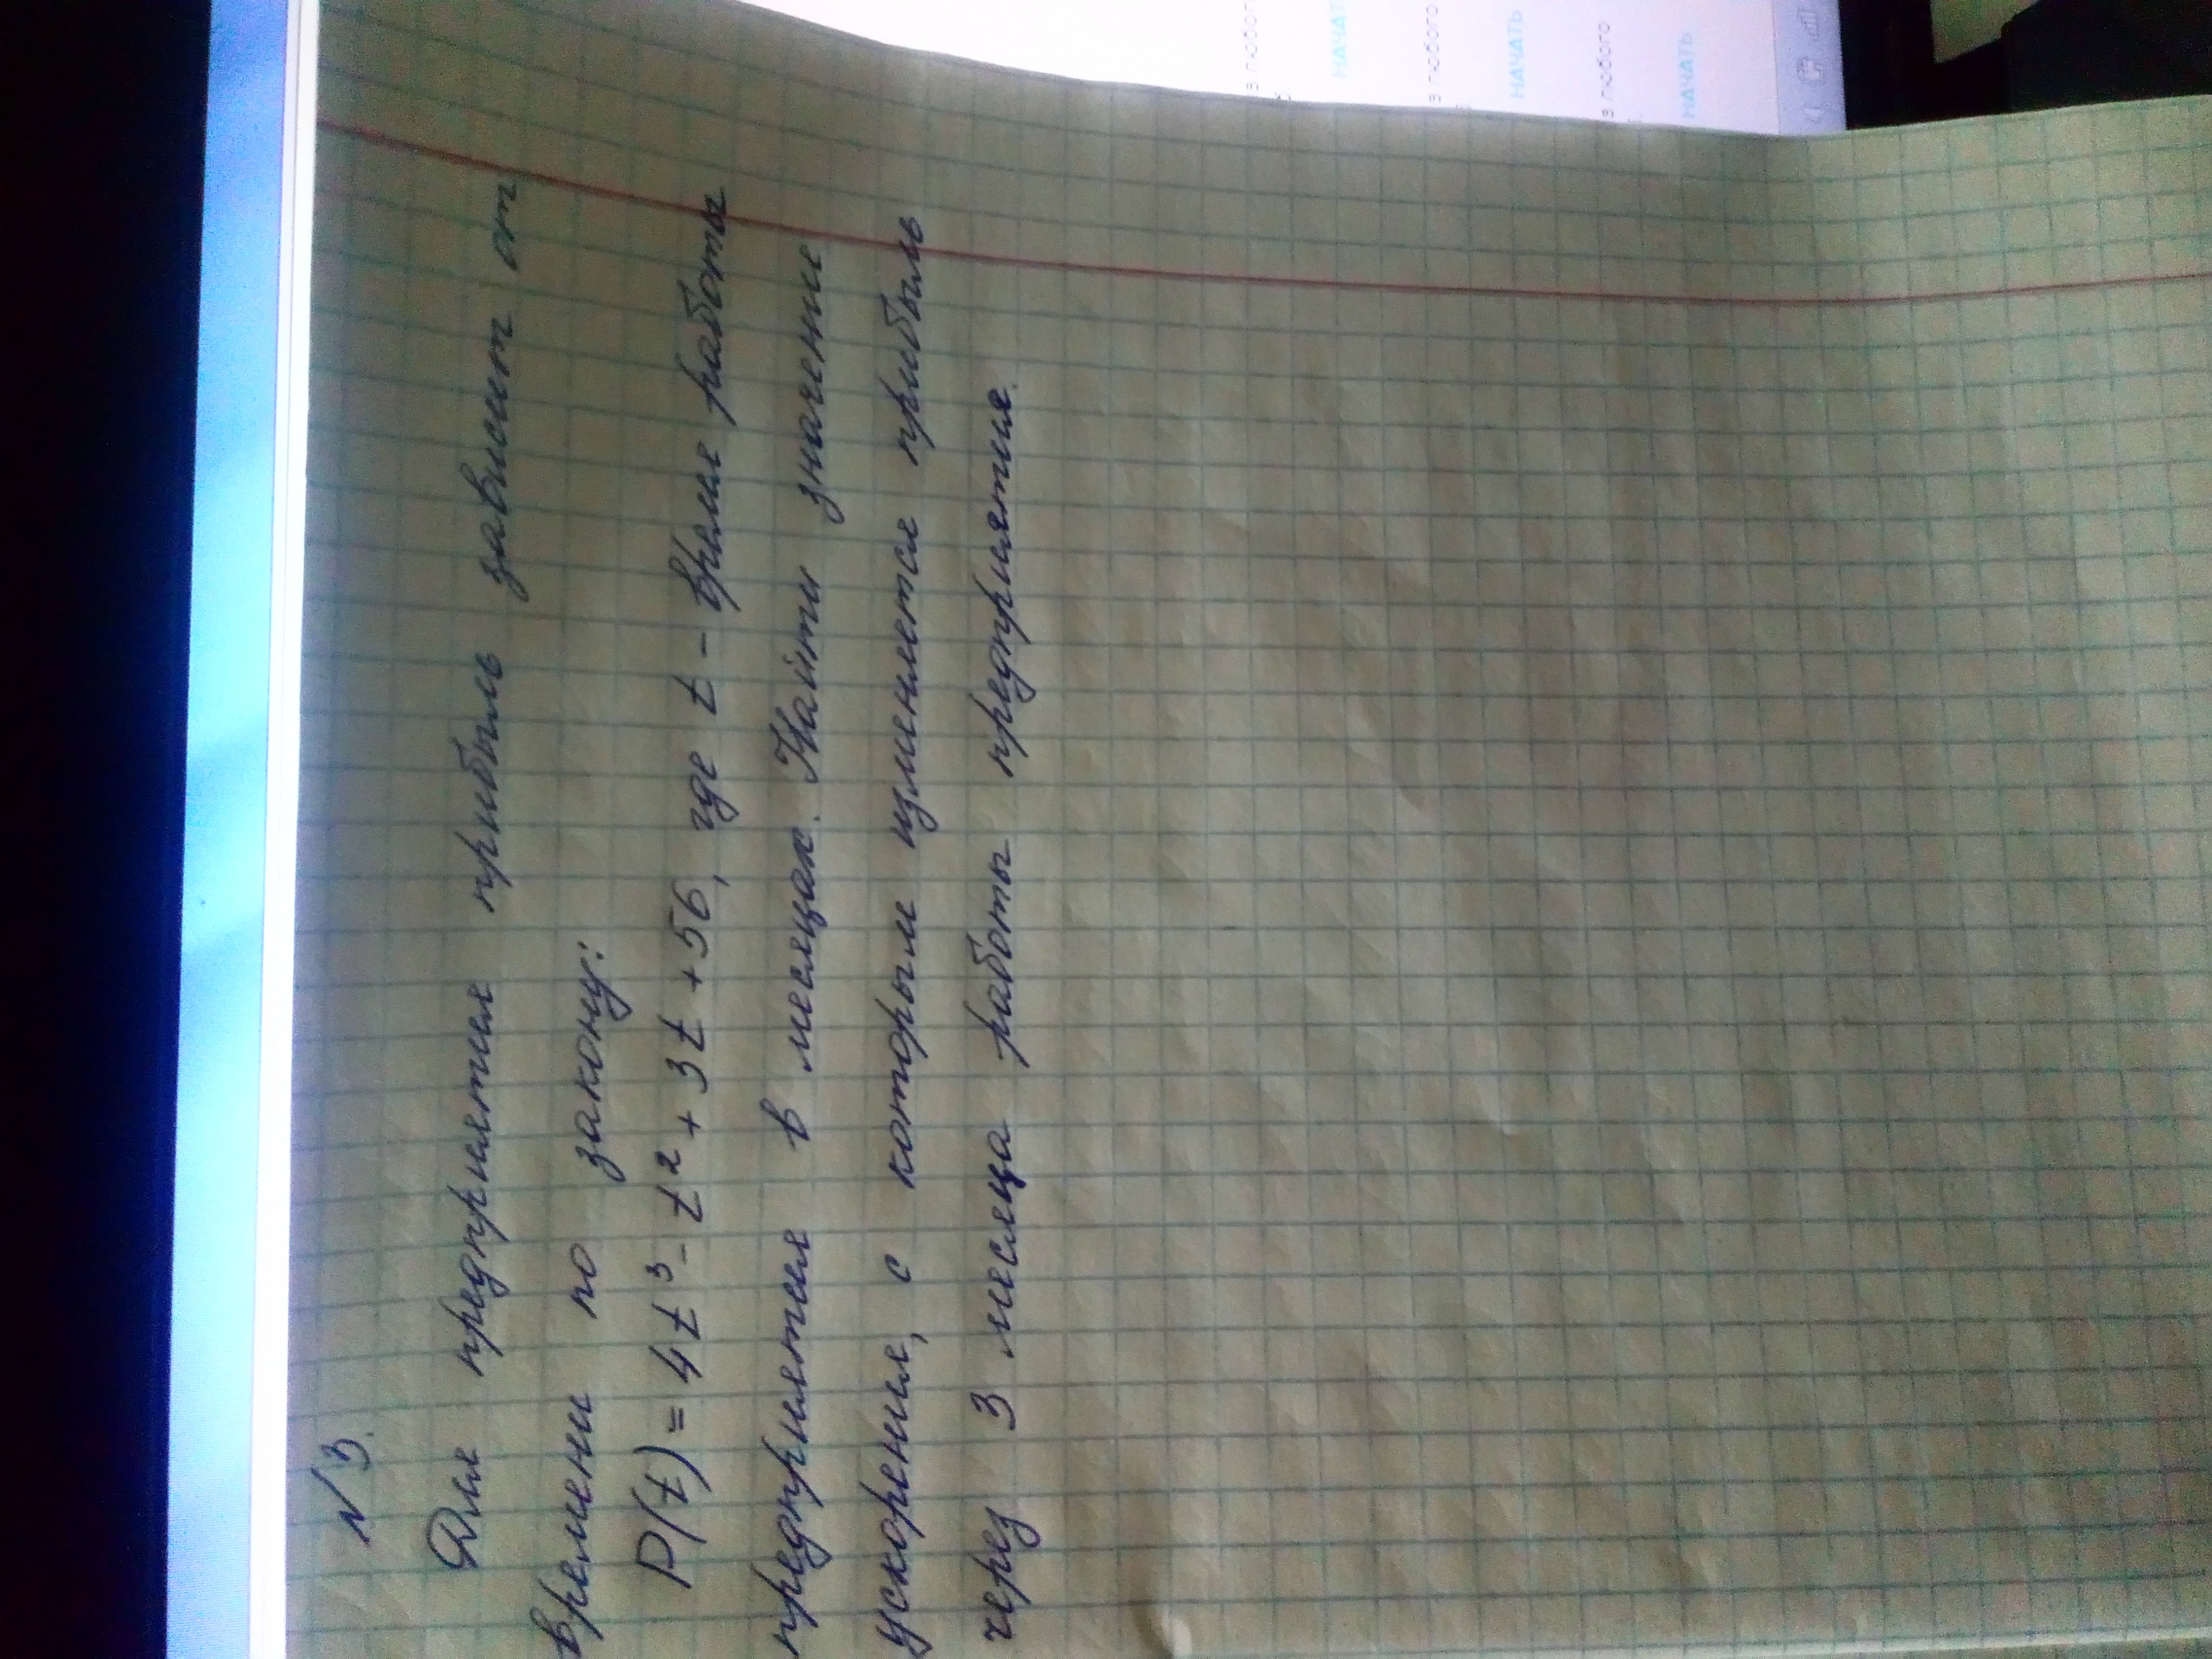 N3.
Для предприятия прибыль зависит от
времени по закону:
P(t) = 4t³ - t² + 3t + 56, где t - время работы
предприятия в месяцах. Найти значение
ускорения, с которым изменяется прибыль
через 3 месяца работы предприятия.
в любого
НАЧАТЬ
в любого
НАЧАТЬ
в любого
НАЧАТЬ